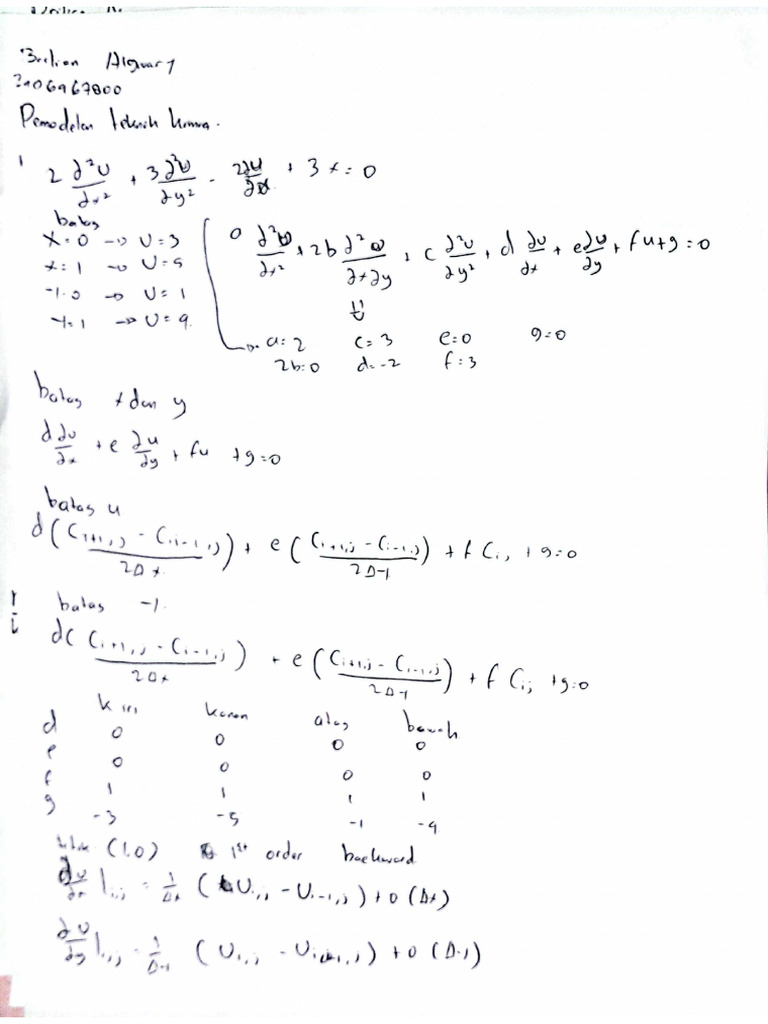 2106967800
Pemodelan teknik kimia.
1 2 ∂²U/∂x² + 3 ∂²U/∂y² - 2∂U/∂x + 3x = 0
batas
x=0 → U=3
x=1 → U=5
y=0 → U=1
y=1 → U=9
a ∂²U/∂x² + 2b ∂²U/∂x∂y + c ∂²U/∂y² + d ∂U/∂x + e ∂U/∂y + fu + g = 0
a=2 c=3 e=0 g=0
2b=0 d=-2 f=3
batas x dan y
d ∂U/∂x + e ∂U/∂y + fu + g = 0
batas u
d (C i+1,j - C i-1,j / 2Δx) + e (C i+1,j - C i-1,j / 2Δy) + f C i,j + g = 0
batas y
d (C i+1,j - C i-1,j / 2Δx) + e (C i+1,j - C i-1,j / 2Δy) + f C i,j + g = 0
kiri kanan atas bawah
d 0 0 0 0
e 0 0 0 0
f 1 1 1 1
g -3 -5 -1 -9
(1,0) 1st order backward
∂U/∂x | i,j = 1/Δx (U i,j - U i-1,j) + 0 (Δx)
∂U/∂y | i,j = 1/Δy (U i,j - U i-1,j) + 0 (Δy)